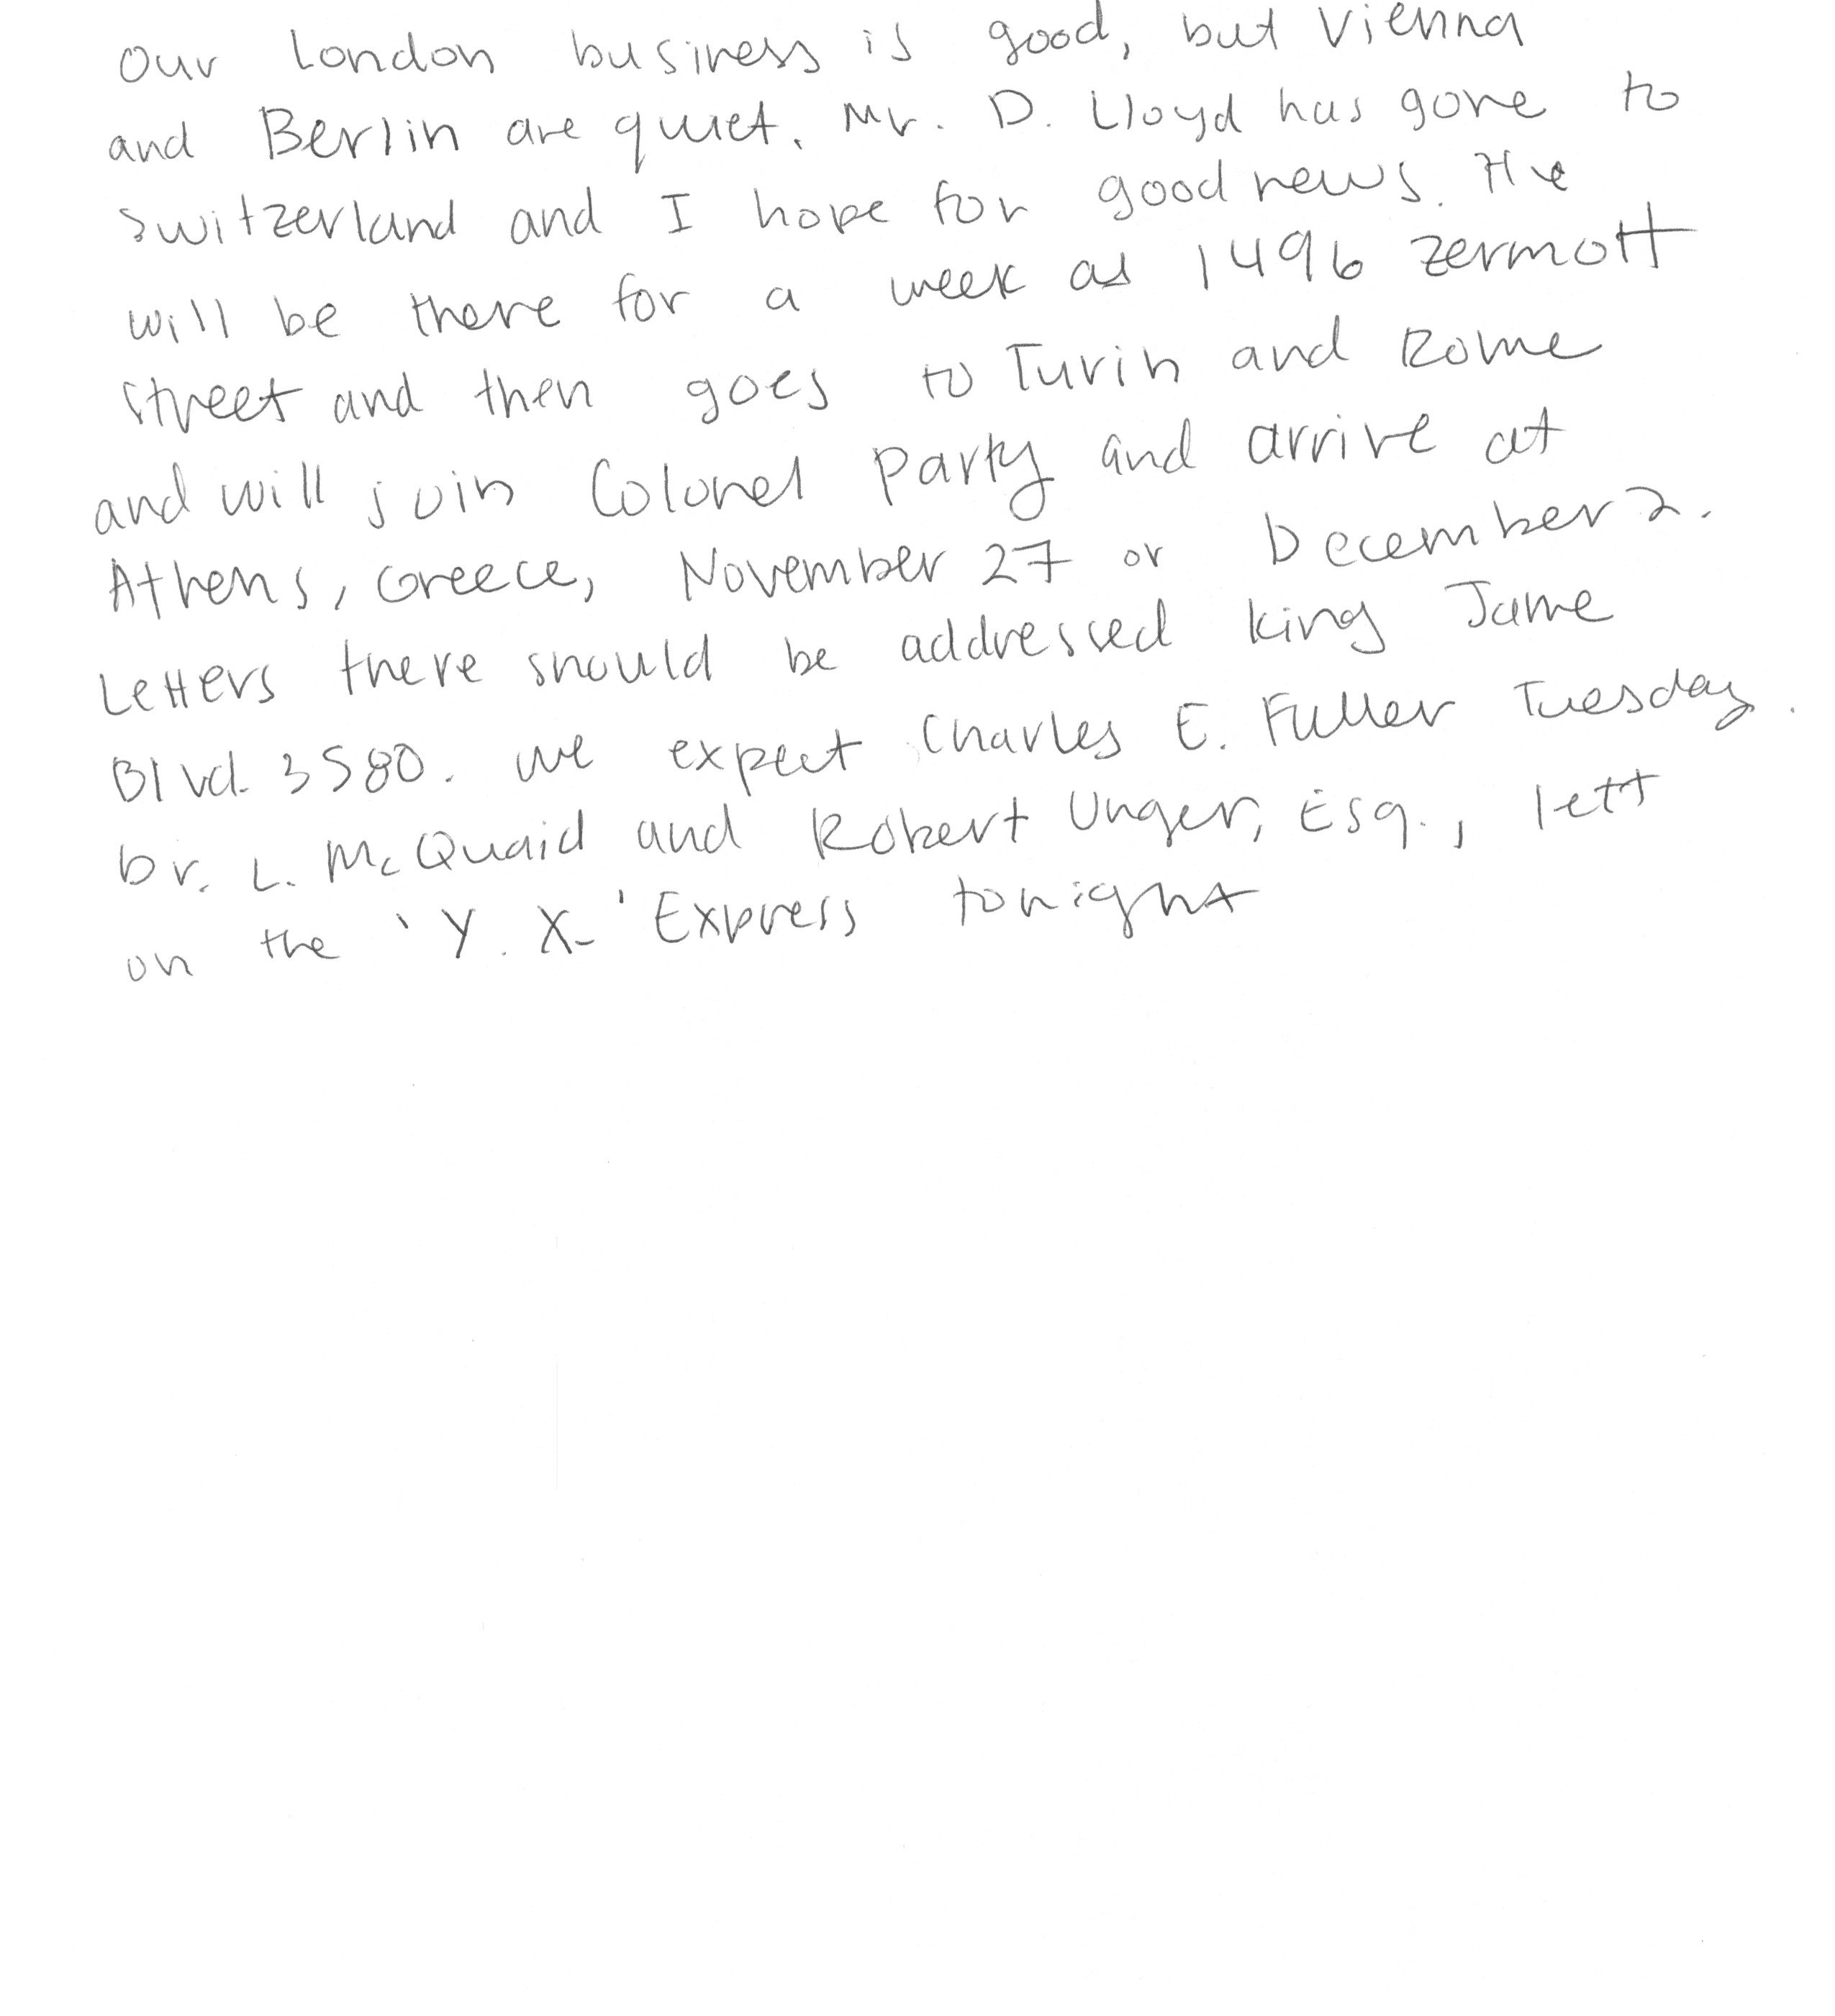 Our London business is good, but Vienna
and Berlin are quiet. Mr. D. Lloyd has gone to
Switzerland and I hope for good news. He
will be there for a week as 1496 Zermott
street and then goes to Turin and Rome
and will join Colonel Party and arrive at
Athens, Greece, November 27 or December 2.
Letters there should be addressed King Jame
Blvd. 3580. We expect Charles E. Fuller Tuesday.
Dr. L. McQuaid and Robert Unger, Esq., left
on the 'Y. X.' Express tonight